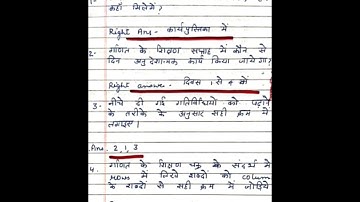 कहाँ मिलेगें?
Right Ans - कार्यपुस्तिका में
2- गणित के शिक्षण सप्ताह में कौन से
दिन अनुदेशात्मक कार्य किया जायेगा?
Right answer- दिवस 1 से 4 में
3- नीचे दी गई गतिविधियो को पढ़ाने
के तरीके के अनुसार सही क्रम में
लगाइए।
Ans. 2, 1, 3
4. गणित के शिक्षण चक्र के संदर्भ में
rows में लिखे शब्दों को column
के शब्दों से सही क्रम में जोड़िये